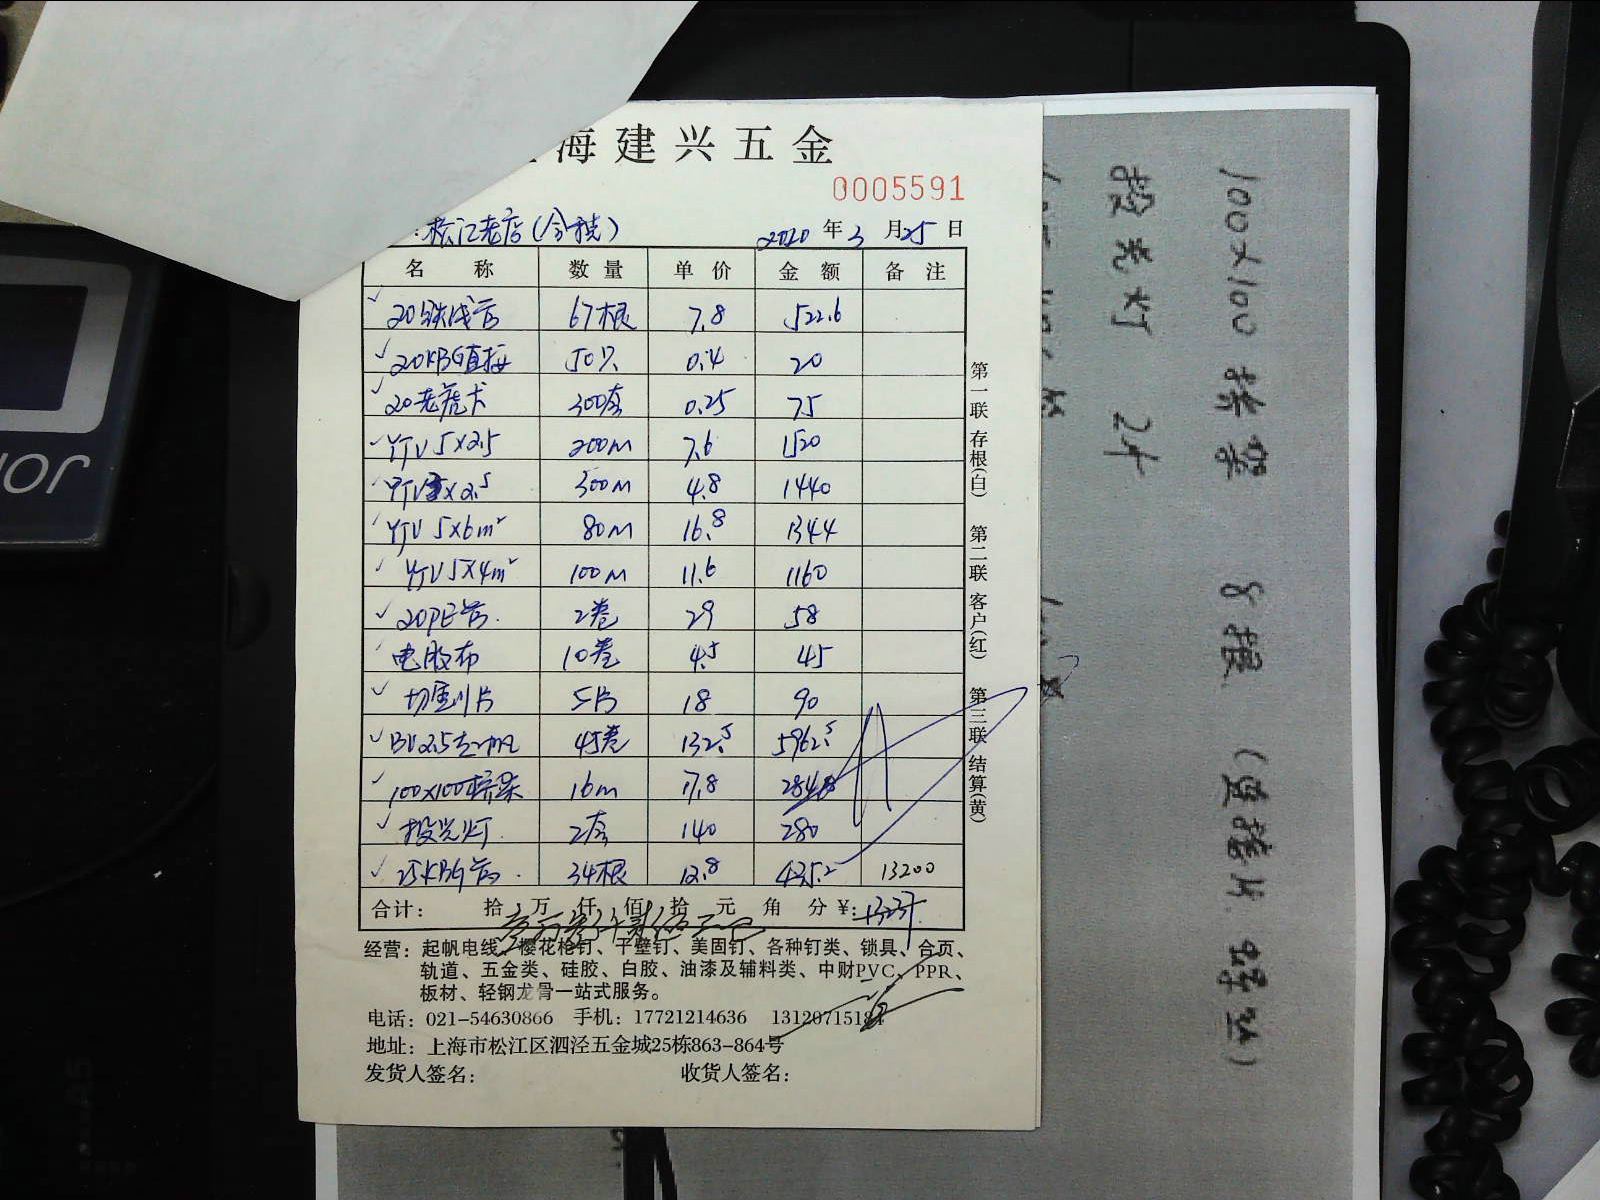 海建兴五金
0005591
松江老店(含税) 2020年3月25日
名称 数量 单价 金额 备注
20铁线管 67根 7.8 522.6
20KBG直接 50只 0.4 20
20老虎卡 300套 0.25 75
YJV 5×2.5 200m 7.6 1520
YJV3×2.5 300m 4.8 1440
YJV 5×6m² 80m 16.8 1344
YJV5×4m² 100m 11.6 1160
20PE管 2卷 29 58
电胶布 10卷 4.5 45
切割片 5片 18 90
BV2.5 45卷 132.5 5962.5
100×100桥架 16m 17.8 284.8
投光灯 2套 140 280
25KBG管 34根 12.8 435.2 13200
合计: 拾 万 仟 佰 拾 元 角 分 ¥: 13237
经营: 起帆电线、樱花枪钉、干壁钉、美固钉、各种钉类、锁具、合页、
轨道、五金类、硅胶、白胶、油漆及辅料类、中财PVC、PPR、
板材、轻钢龙骨一站式服务。
电话: 021-54630866 手机: 17721214636 13120715184
地址: 上海市松江区泗泾五金城25栋863-864号
发货人签名: 收货人签名:
第一联 存根(白) 第二联 客户(红) 第三联 结算(黄)
100×100桥架 8根
投光灯 2个